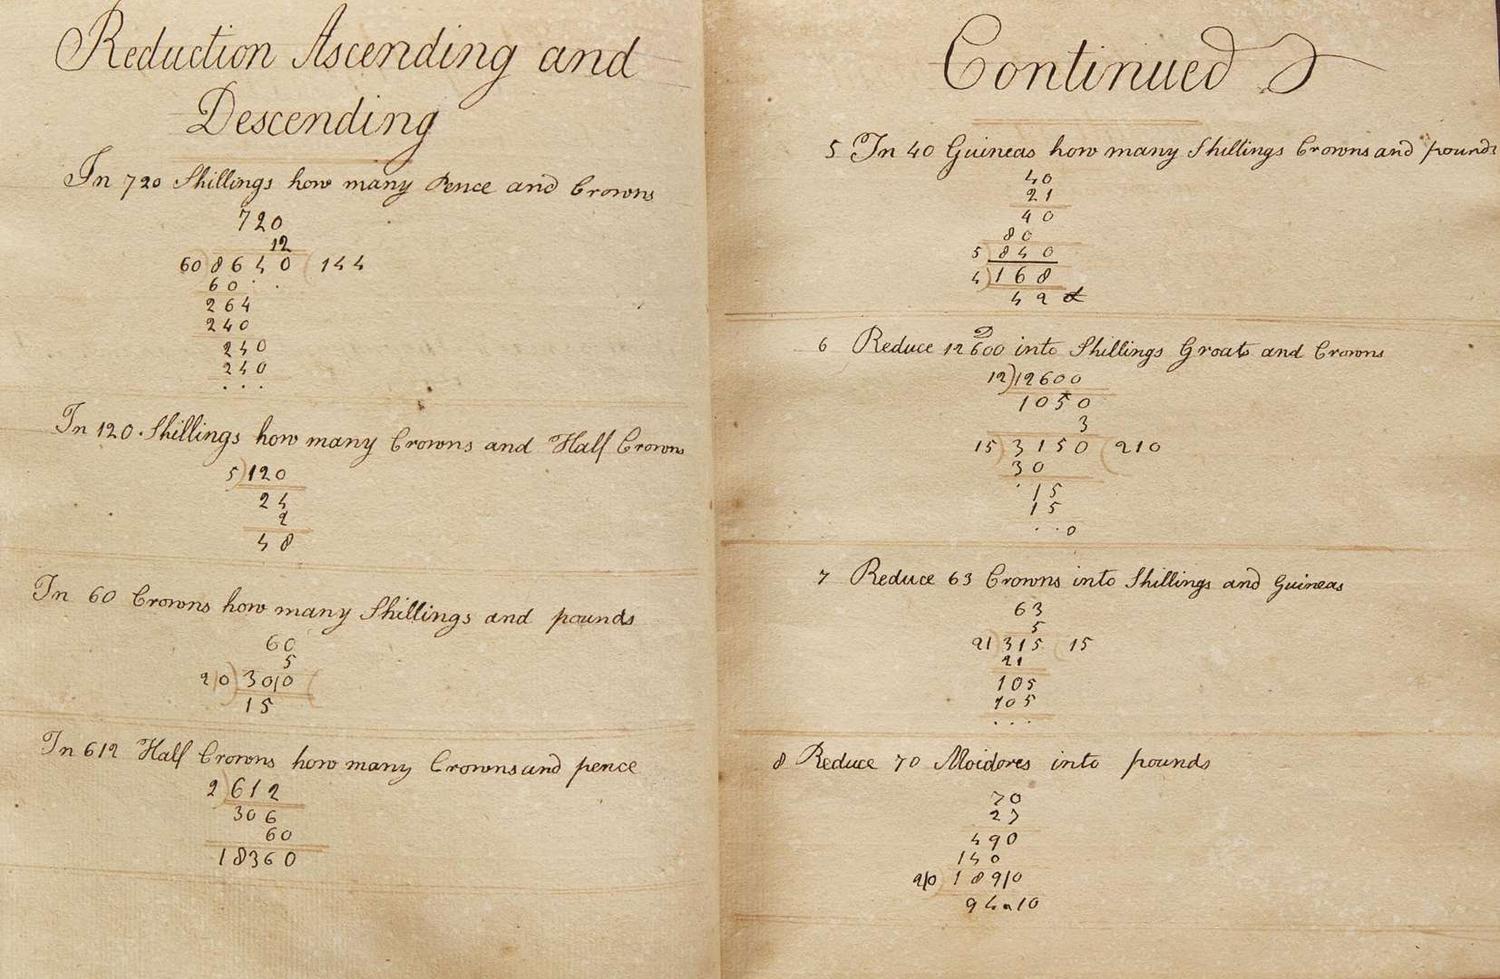 Reduction Ascending and
Descending
In 720 Shillings how many Pence and Crowns
720
12
60) 8640 (144
60 . .
264
240
240
240
. . .
In 120 Shillings how many Crowns and Half Crowns
5)120
24
2
48
In 60 Crowns how many Shillings and pounds
60
5
2|0) 30|0 (
15
In 612 Half Crowns how many Crowns and pence
2)612
306
60
18360
Continued
5 In 40 Guineas how many Shillings Crowns and pounds
40
21
40
80
5) 840
4) 168
42 £
D
6 Reduce 12600 into Shillings Groats and Crowns
12)12600
1050
3
15) 3150 (210
30
. 15
15
. . 0
7 Reduce 63 Crowns into Shillings and Guineas
63
5
21) 315 (15
21
105
105
. . .
8 Reduce 70 Moidores into pounds
70
27
490
140
2|0) 189|0
94 10